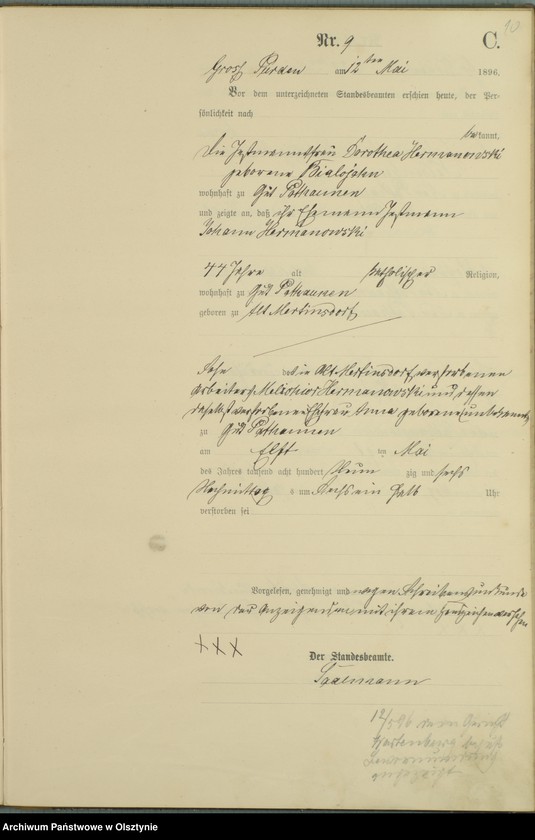 10
Nr. 9
C.
Gross Purden am 12ten Mai 1896.
Vor dem unterzeichneten Standesbeamten erschien heute, der Per-
sönlichkeit nach
bekannt,
die Instmannsfrau Dorothea Hermanowski
geborene
wohnhaft zu Gut Pathaunen
und zeigte an, daß ihr Ehemann Instmann
Johann Hermanowski
44 Jahre alt katholischer Religion,
wohnhaft zu Gut Pathaunen
geboren zu Alt Mertinsdorf
Sohn des in Alt Mertinsdorf verstorbenen
Arbeiters Melchior Hermanowski und dessen
daselbst verstorbenen Ehefrau Anna geborene unbekannt
zu Gut Pathaunen
am Elften Mai
des Jahres tausend acht hundert Neun zig und sechs
Nachmittags um sechs ein halb Uhr
verstorben sei
Vorgelesen, genehmigt und wegen Schreibensunkunde
von der Anzeigenden mit ihrem Handzeichen versehen
+++
Der Standesbeamte.
12/5 96 dem Gericht
Wartenburg
Archiwum Państwowe w Olsztynie